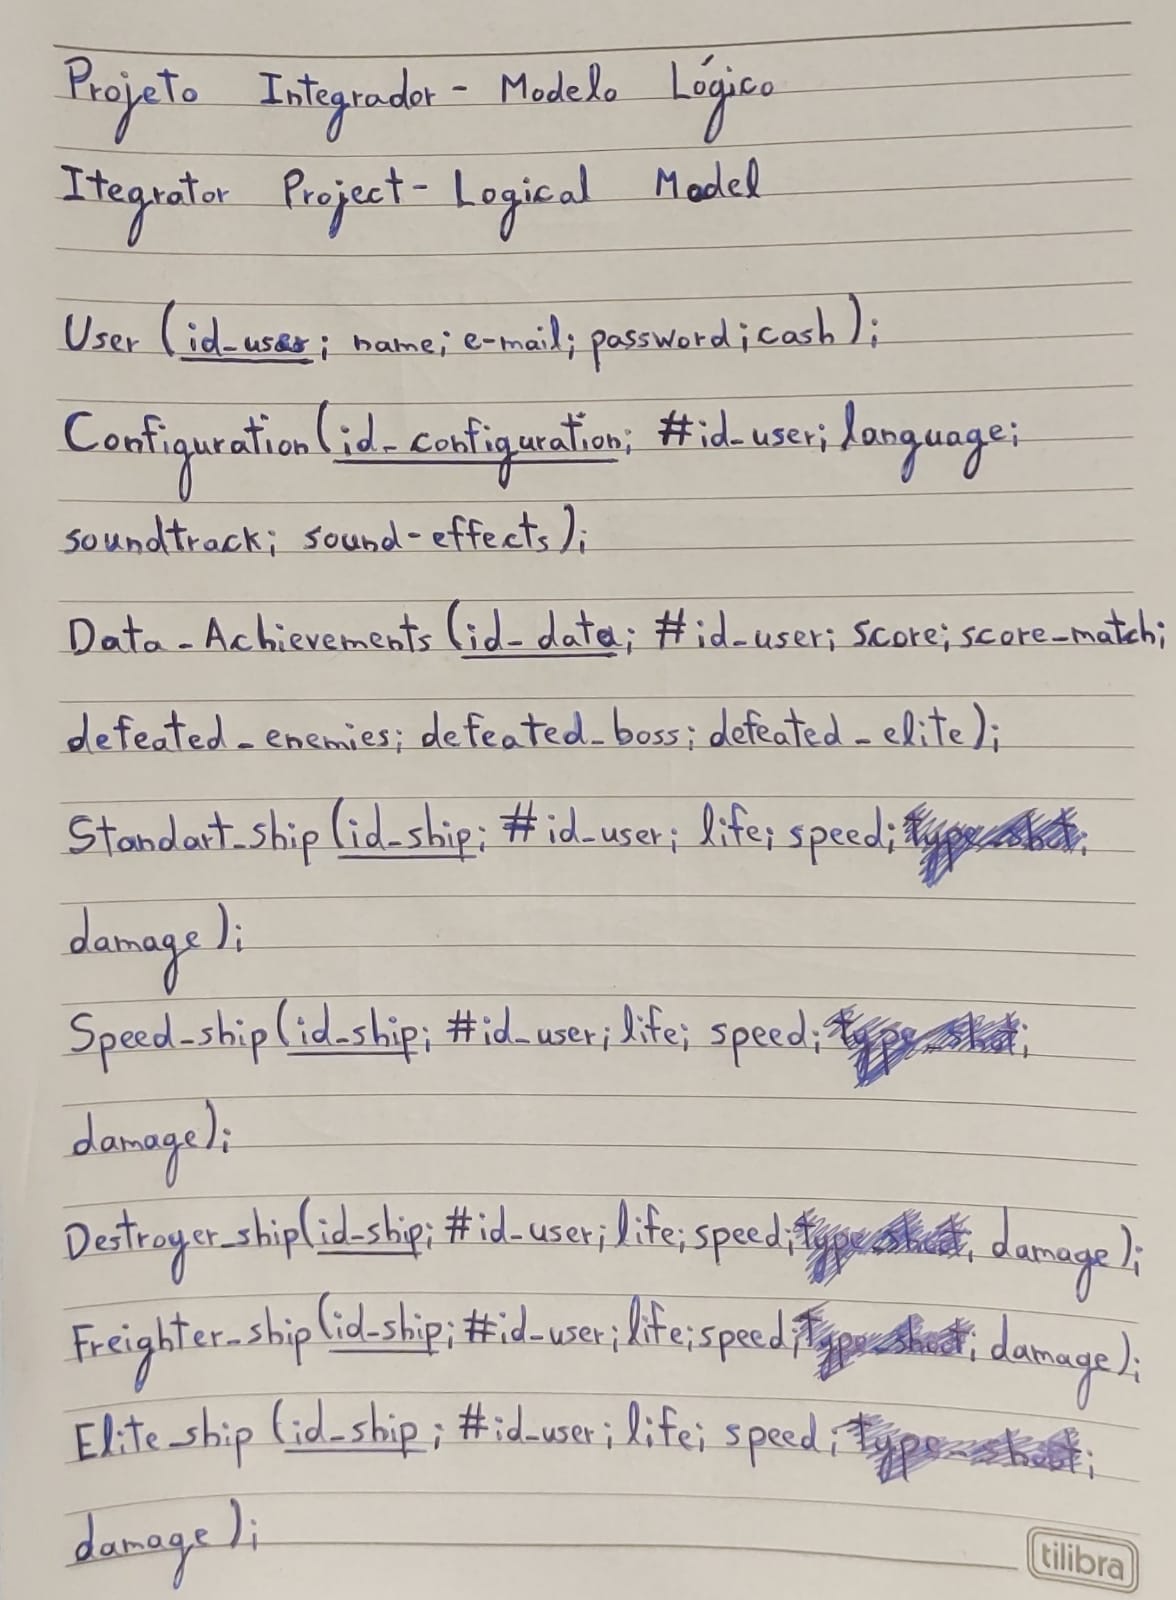 Projeto Integrador - Modelo Lógico
Itegrator Project - Logical Model
User (id_user; name; e-mail; password; cash);
Configuration (id_configuration; #id_user; language;
soundtrack; sound-effects);
Data_Achievements (id_data; #id_user; score; score_match;
defeated_enemies; defeated_boss; defeated_elite);
Standart_ship (id_ship; #id_user; life; speed;
damage);
Speed_ship (id_ship; #id_user; life; speed;
damage);
Destroyer_ship (id_ship; #id_user; life; speed; damage);
Freighter_ship (id_ship; #id_user; life; speed; damage);
Elite_ship (id_ship; #id_user; life; speed;
damage);
tilibra